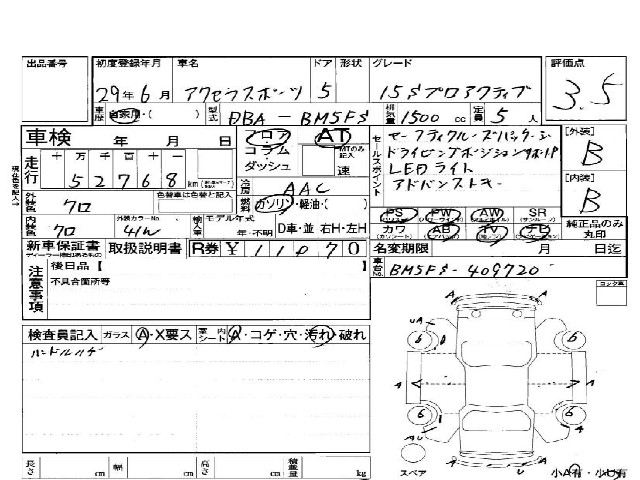 出品番号 初度登録年月 車名 ドア 形状 グレード 評価点
29年6月 アクセラスポーツ 5 15Sプロアクティブ 3.5
車歴 自家用・( ) 型式 DBA-BM5FS 排気量 1500cc 定員 5人
車検 年 月 日 フロア AT セールスポイント セーフティクルーズパッケージ [外装]
コラム MTのみ記入 ドライビングポジションサポートP B
走行 十 万 千 百 十 ダッシュ 速 LEDライト
52768km 冷房 AAC アドバンストキー [内装]
外装色 クロ 色替車は色替と記入 燃料 ガソリン・軽油・( ) B
内装色 クロ 外装カラーNo. 41W 輸入車 モデル年式 年・不明 D車・並 右H・左H PS PW AW SR
カワ AB TV ナビ 純正品のみ丸印
新車保証書 取扱説明書 R券 ¥11070 名変期限 月 日迄
注意事項 後日品【 】 車台No. BM5FS-409720
不具合箇所等 ロック車
検査員記入 ガラス A・X要ス 室内シート A・コゲ・穴・汚れ・破れ
ハンドルハゲ
UA A A
6 6
A A
6 6
AU A
A U
長さ cm 幅 cm 高さ cm 積載量 kg スペア 小A有・小U有